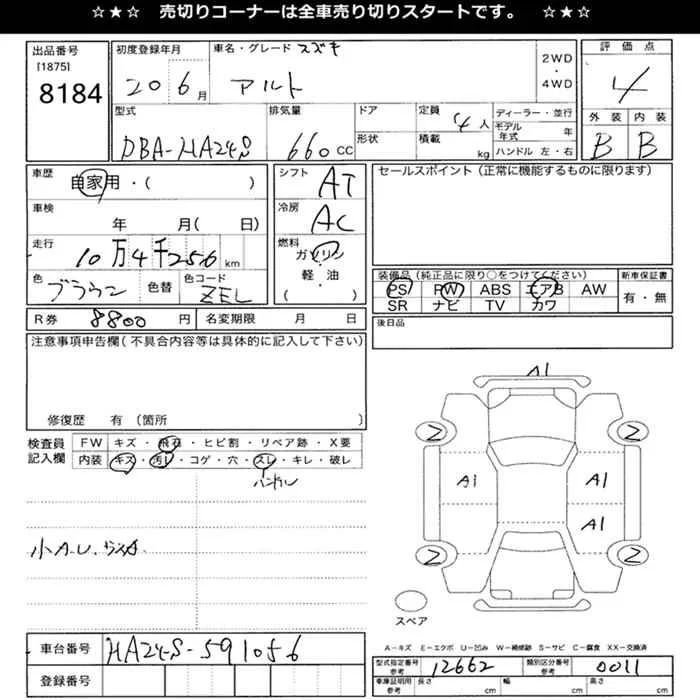 ☆★☆ 売切りコーナーは全車売り切りスタートです。 ☆★☆
出品番号
[1875]
8184
初度登録年月
20 6月
車名・グレード スズキ
アルト
2WD
・
4WD
評価点
4
外装 内装
B B
型式
DBA-HA24S
排気量
660CC
ドア
形状
定員
4人
積載
kg
ディーラー・並行
モデル年式 年
ハンドル 左・右
車歴
自家用・( )
車検
年 月( 日)
走行
10万4千256km
色
ブラウン
色替
色コード
ZEL
シフト
AT
冷房
AC
燃料
ガソリン
軽・油
( )
セールスポイント(正常に機能するものに限ります)
装備品(純正品に限り○をつけてください)
PS PW ABS エアB AW
SR ナビ TV カワ
新車保証書
有・無
R券 8800円
名変期限 月 日
後日品
注意事項申告欄(不具合内容等は具体的に記入して下さい)
修復歴 有(箇所 )
検査員記入欄
FW キズ・飛石・ヒビ割・リペア跡・X要
内装 キズ・汚レ・コゲ・穴・スレ・キレ・破レ
ハンドル
小A.U.
A1
2 2
A1 A1
A1
2 2
スペア
車台番号 HA24S-591056
登録番号
A-キズ E-エクボ U-凹み W-補修跡 S-サビ C-腐食 XX-交換済
型式指定番号
参考
12662
類別区分番号
参考
0011
車庫証明用
参考
長さ cm 幅 cm 高さ cm